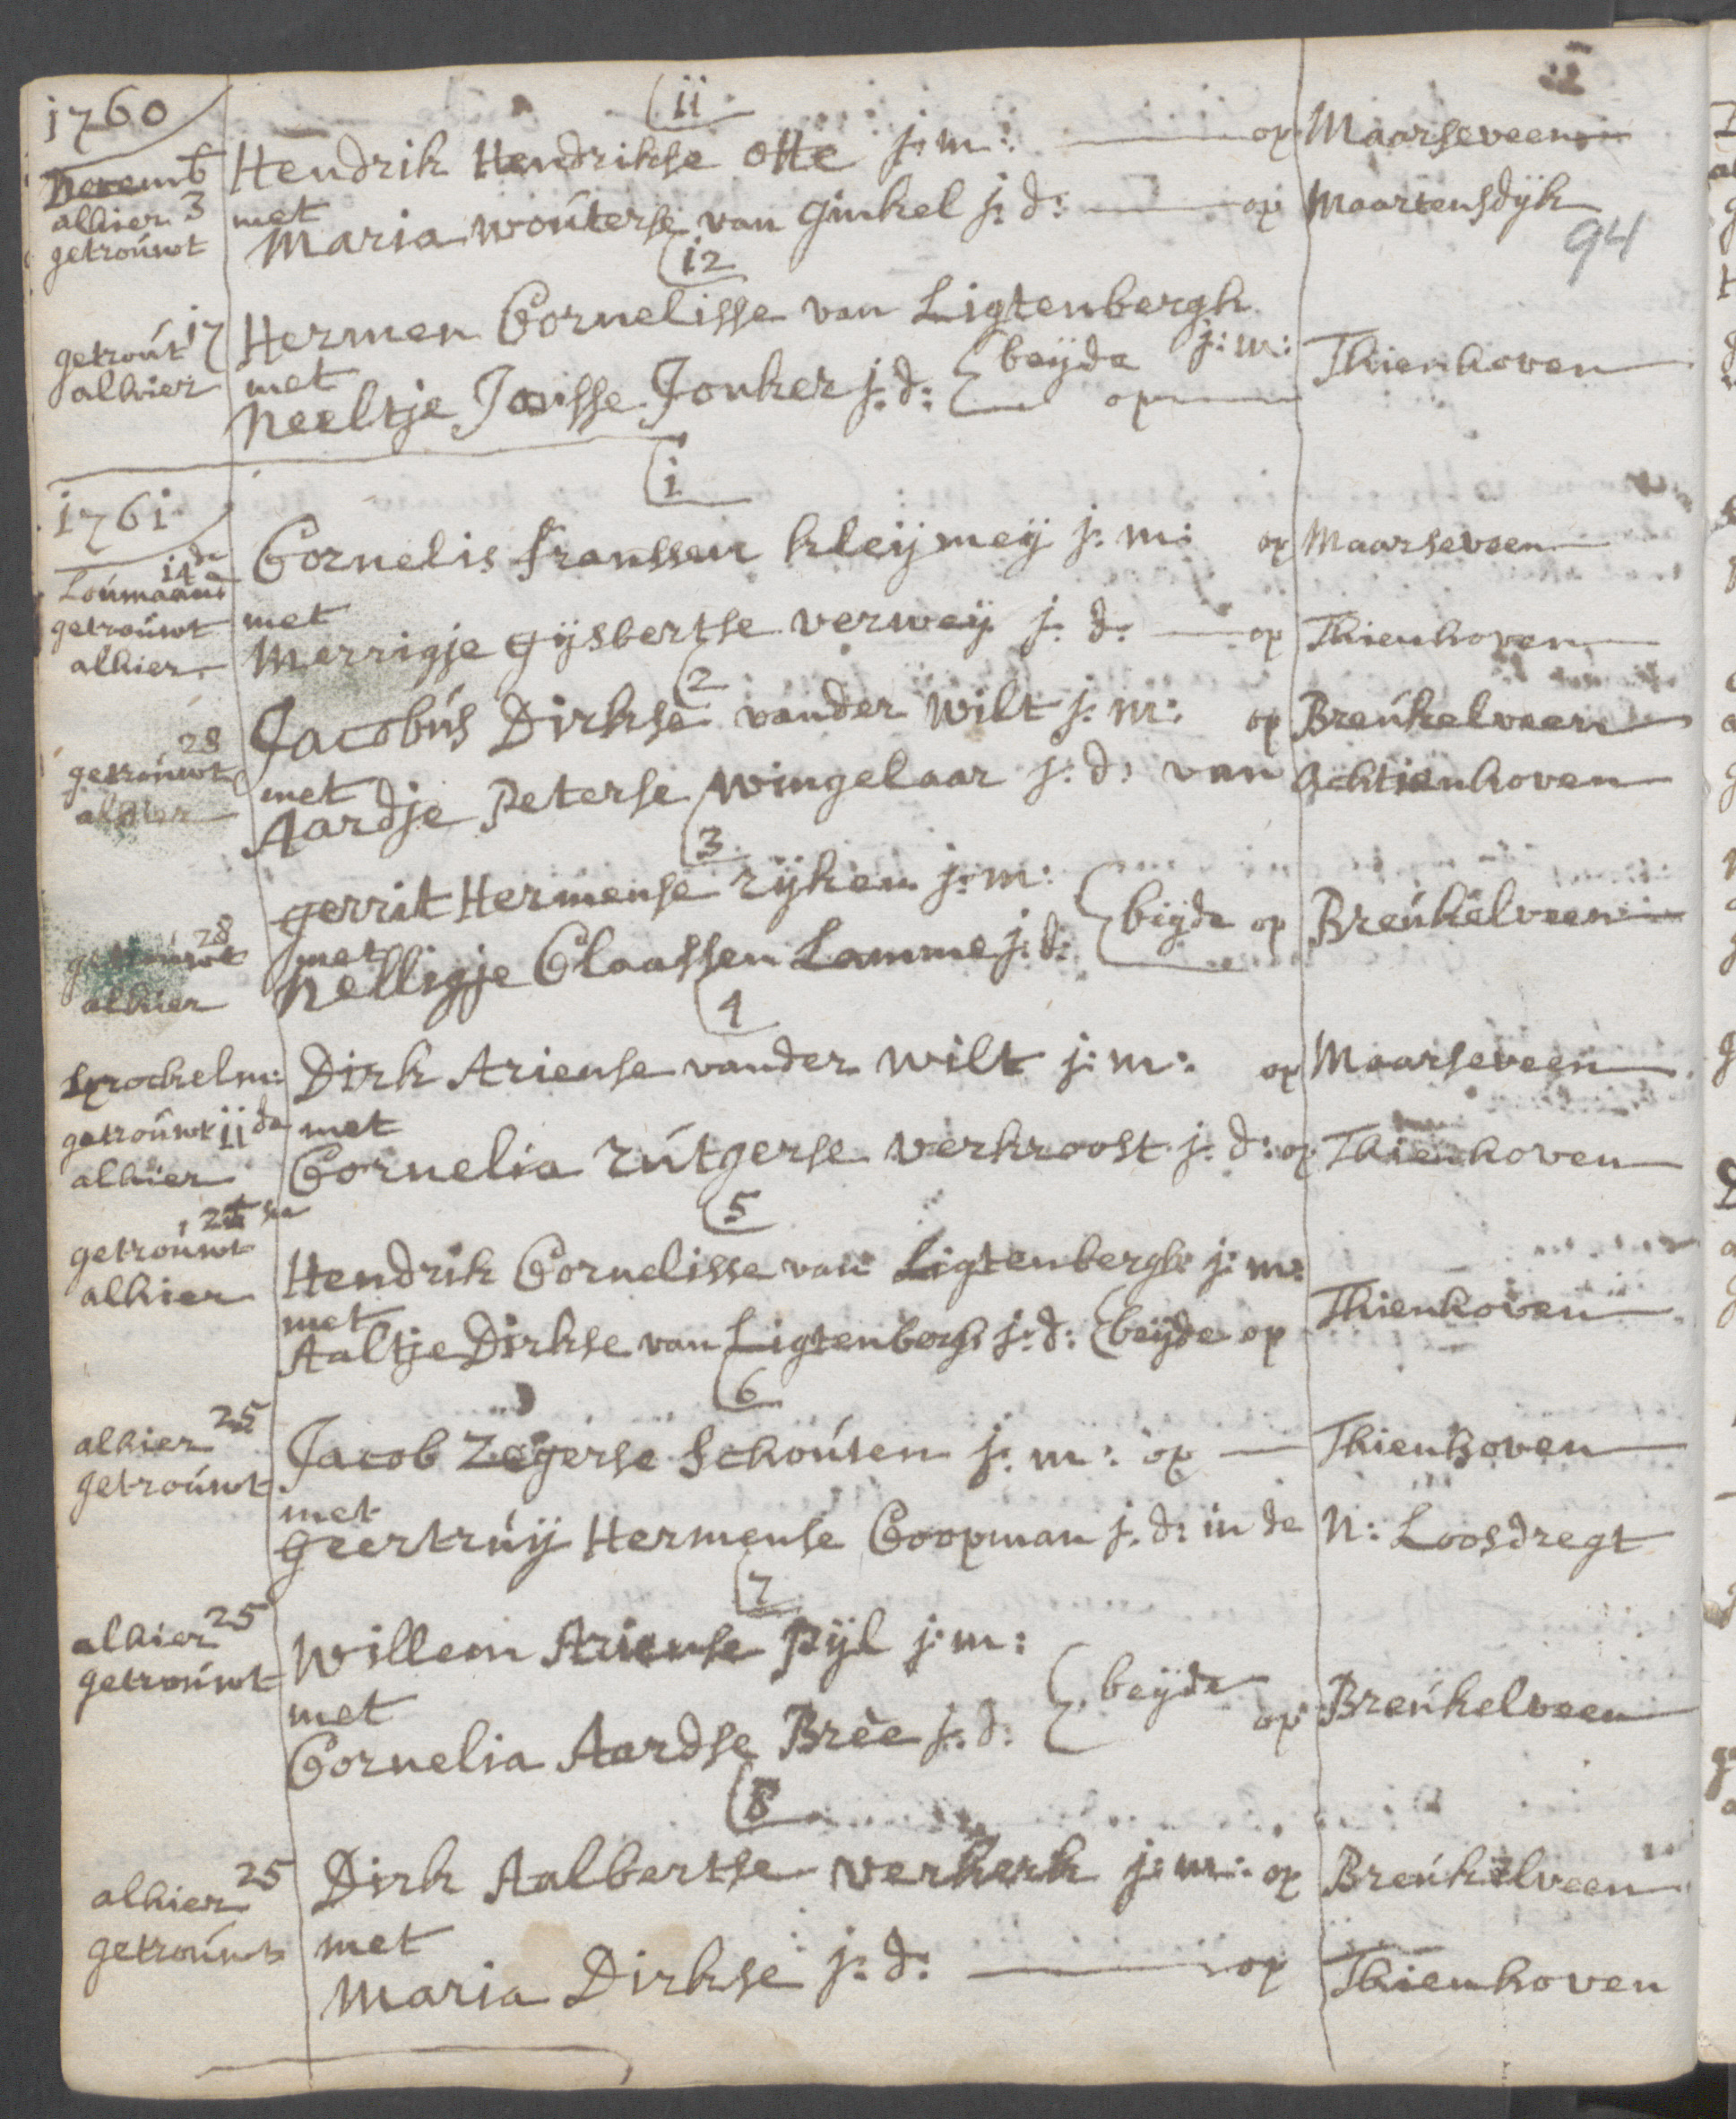 1760
(11
Novemb
Hendrik Hendrikse otte j: m: op Maarseveen
alhier 3
met
getrouwt
Maria wouterse van Ginkel j: d: op Maartensdijk
94
(12
Hermen Cornelisse van Ligtenbergh
getrout 17
met
{beyde j: m: Thienhoven
alhier
Neeltje Jansse Jonker j: d: op
1761
(1
Cornelis franssen kleijmeij j: m: op Maarseveen
14de
Loumaand
getrouwt
met
alhier
Merrigje Gijsbertse verweij j: d: op Thienhoven
(2
Jacobus Dirkse vander Wilt j: m: op Breukelveen
28
getrouwt
met
alhier
Aardje Peterse Wingelaar j: d: van Achtienhoven
(3
gerrit Hermense rijken j: m:
28
getrouwt
met
{beyde op Breukelveen
alhier
Nelligje Claassen Lamme j: d:
(4
Sprokelm: Dirk Ariense vander Wilt j: m: op Maarseveen
getrouwt 11de met
alhier
Cornelia rutgerse verkroost j: d: op Thienhoven
(5
getrouwt
Hendrik Cornelisse van Ligtenbergh j: m:
alhier
met
Thienhoven
Aaltje Dirkse van Ligtenbergh j: d: {beyde op
(6
alhier 25
Jacob Zegerse Schouten j: m: op Thienhoven
getrouwt
met
Geertruij Hermense Coopman j: d: in de N: Loosdregt
(7
alhier 25
Willem Ariense Pijl j: m:
getrouwt
met
{beyde op Breukelveen
Cornelia Aardse Brèe j: d:
(8
alhier 25
Dirk Aalbertse verkerk j: m: op Breukelveen
getrouwt
met
Maria Dirkse j: d: op Thienhoven